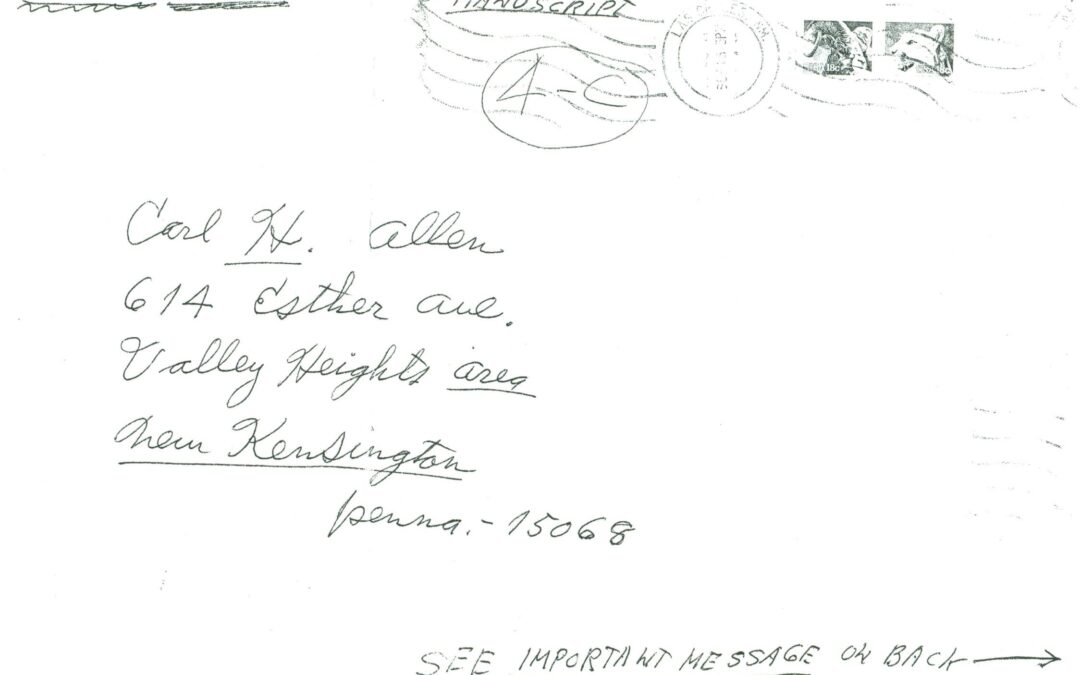 MANUSCRIPT
4-C
18c
Carl H. Allen
614 Esther Ave.
Valley Heights area
New Kensington
Penna. - 15068
SEE IMPORTANT MESSAGE ON BACK